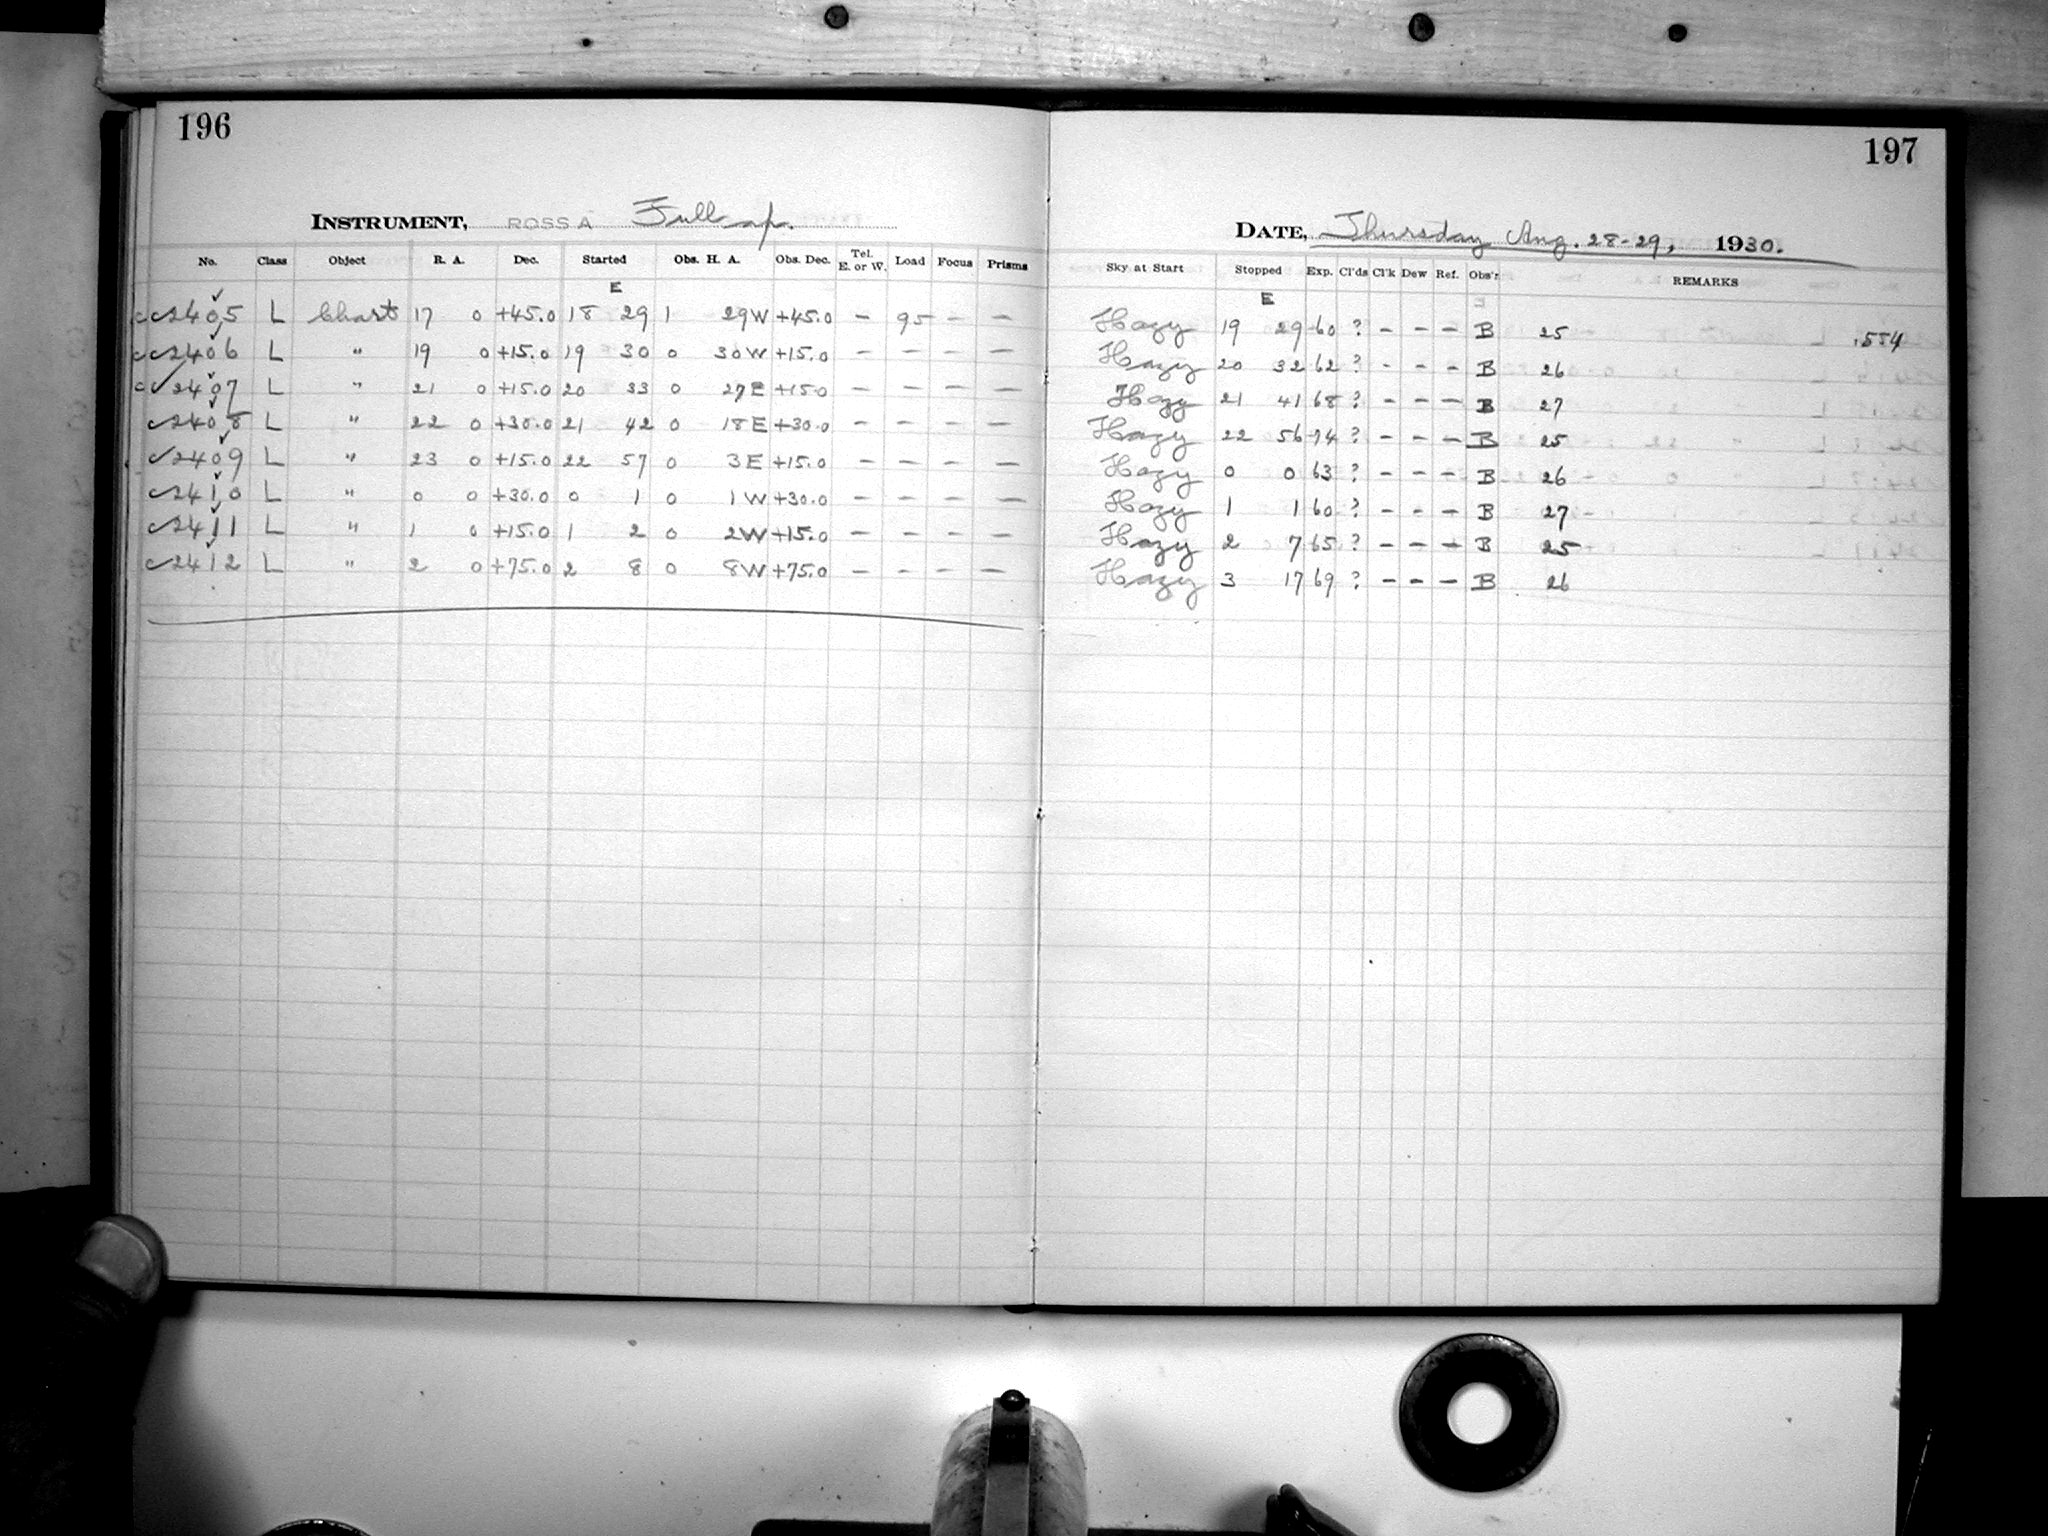 196
INSTRUMENT, ROSS A Full ap.
No. Class Object R. A. Dec. Started Obs. H. A. Obs. Dec. Tel. E. or W. Load Focus Prisms
E
2405 L Chart 17 0 +45.0 18 29 1 29W +45.0 – 95 – –
2406 L " 19 0 +15.0 19 30 0 30W +15.0 – – – –
2407 L " 21 0 +15.0 20 33 0 27E +15.0 – – – –
2408 L " 22 0 +30.0 21 42 0 18E +30.0 – – – –
2409 L " 23 0 +15.0 22 57 0 3E +15.0 – – – –
2410 L " 0 0 +30.0 0 1 0 1W +30.0 – – – –
2411 L " 1 0 +15.0 1 2 0 2W +15.0 – – – –
2412 L " 2 0 +75.0 2 8 0 8W +75.0 – – – –
197
DATE, Thursday Aug. 28-29, 1930.
Sky at Start Stopped Exp. Cl'ds Cl'k Dew Ref. Obs'r REMARKS
E
Hazy 19 29 60 ? – – – B 25 .554
Hazy 20 32 62 ? – – – B 26
Hazy 21 41 68 ? – – – B 27
Hazy 22 56 74 ? – – – B 25
Hazy 0 0 63 ? – – – B 26
Hazy 1 1 60 ? – – – B 27
Hazy 2 7 65 ? – – – B 25
Hazy 3 17 69 ? – – – B 26